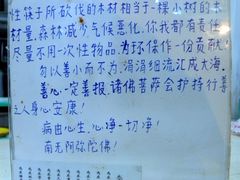 性筷子所砍伐的木材相当于一棵小树的木
材量,森林减少气候恶化,你我都有责任
尽量不用一次性物品,为环保作一份贡献!
勿以善小而不为,涓涓细流汇成大海,
善心一定善报,诸佛菩萨会护持行善
之人身心安康!
病由心生,心净一切净!
南无阿弥陀佛!